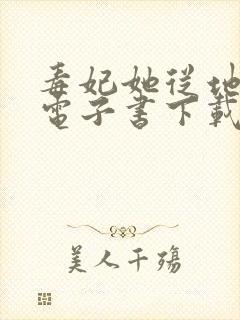 毒妃她從地
電子書下載
美人千殤